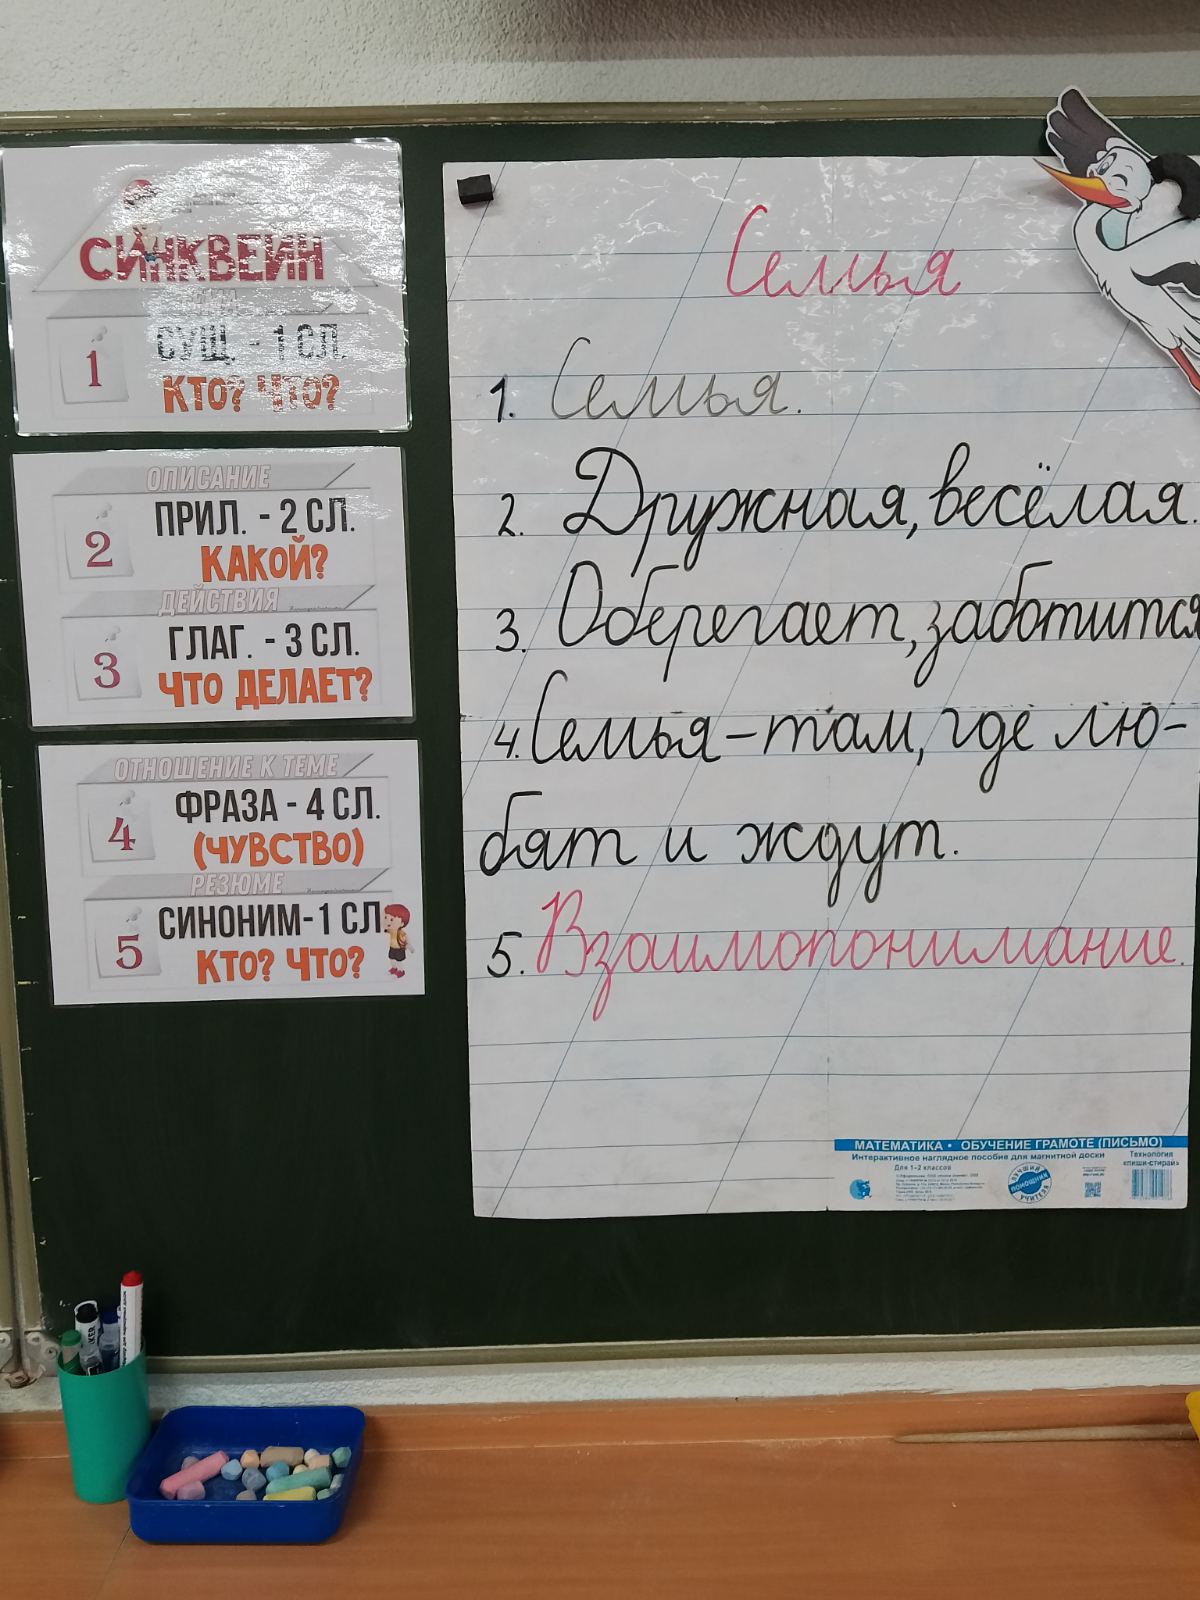 СИНКВЕЙН
1
СУЩ. - 1 СЛ.
КТО? ЧТО?
ОПИСАНИЕ
2
ПРИЛ. - 2 СЛ.
КАКОЙ?
ДЕЙСТВИЯ
3
ГЛАГ. - 3 СЛ.
ЧТО ДЕЛАЕТ?
ОТНОШЕНИЕ К ТЕМЕ
4
ФРАЗА - 4 СЛ.
(ЧУВСТВО)
РЕЗЮМЕ
5
СИНОНИМ-1 СЛ.
КТО? ЧТО?
Семья
1. Семья.
2. Дружная, весёлая.
3. Оберегает, заботится
4. Семья – там, где лю-
бят и ждут.
5. Взаимопонимание.
МАТЕМАТИКА • ОБУЧЕНИЕ ГРАМОТЕ (ПИСЬМО)
Интерактивное наглядное пособие для магнитной доски
Для 1-2 классов
Технология
«пиши-стирай»
ЛУЧШИЙ
ПОМОЩНИК
УЧИТЕЛЯ